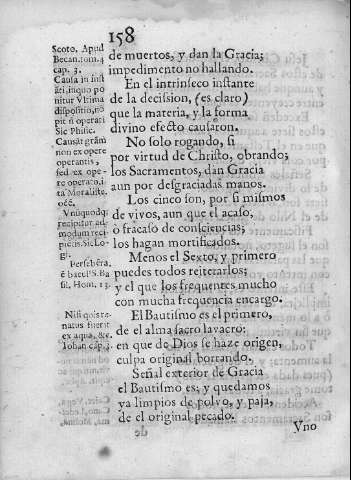 158
Scoto. Apud
Becan. tom. 4
cap. 3.
Causa in inst
ãti, in quo po
nitur Vltima
dispositio, nõ
pit si operati
Sic Philic.
Causãt grãm
non ex opere
operantis,
sed ex ope-
re operato, i
ta Moraliste.
occ.
Vnũquodq;
recipitur ad
modum reci-
pientis. Sic. Lo-
gi.
Persebéra,
è bacul S. Ba
sil. Hom. 13.
Nisi quis re
natus fuerit
ex aqua, &c.
Iohan cap. 3.
de muertos, y dan la Gracia;
impedimento no hallando.
En el intrinseco instante
de la decission, (es claro)
que la materia, y la forma
divino efecto causaron.
No solo rogando, si
por virtud de Christo, obrando;
los Sacramentos, dan Gracia
aun por desgraciadas manos.
Los cinco son, por si mismos
de vivos, aun que el acaso,
o fracaso de consciencias;
los hagan mortificados.
Menos el Sexto, y primero
puedes todos reiterarlos;
y el que los frequentes mucho
con mucha frequencia encargo.
El Bautismo es el primero,
de el alma sacro lavacro:
en que de Dios se haze origen,
culpa original borrando.
Señal exterior de Gracia
el Bautismo es; y quedamos
ya limpios de polvo, y paja,
de el original pecado.
Vno